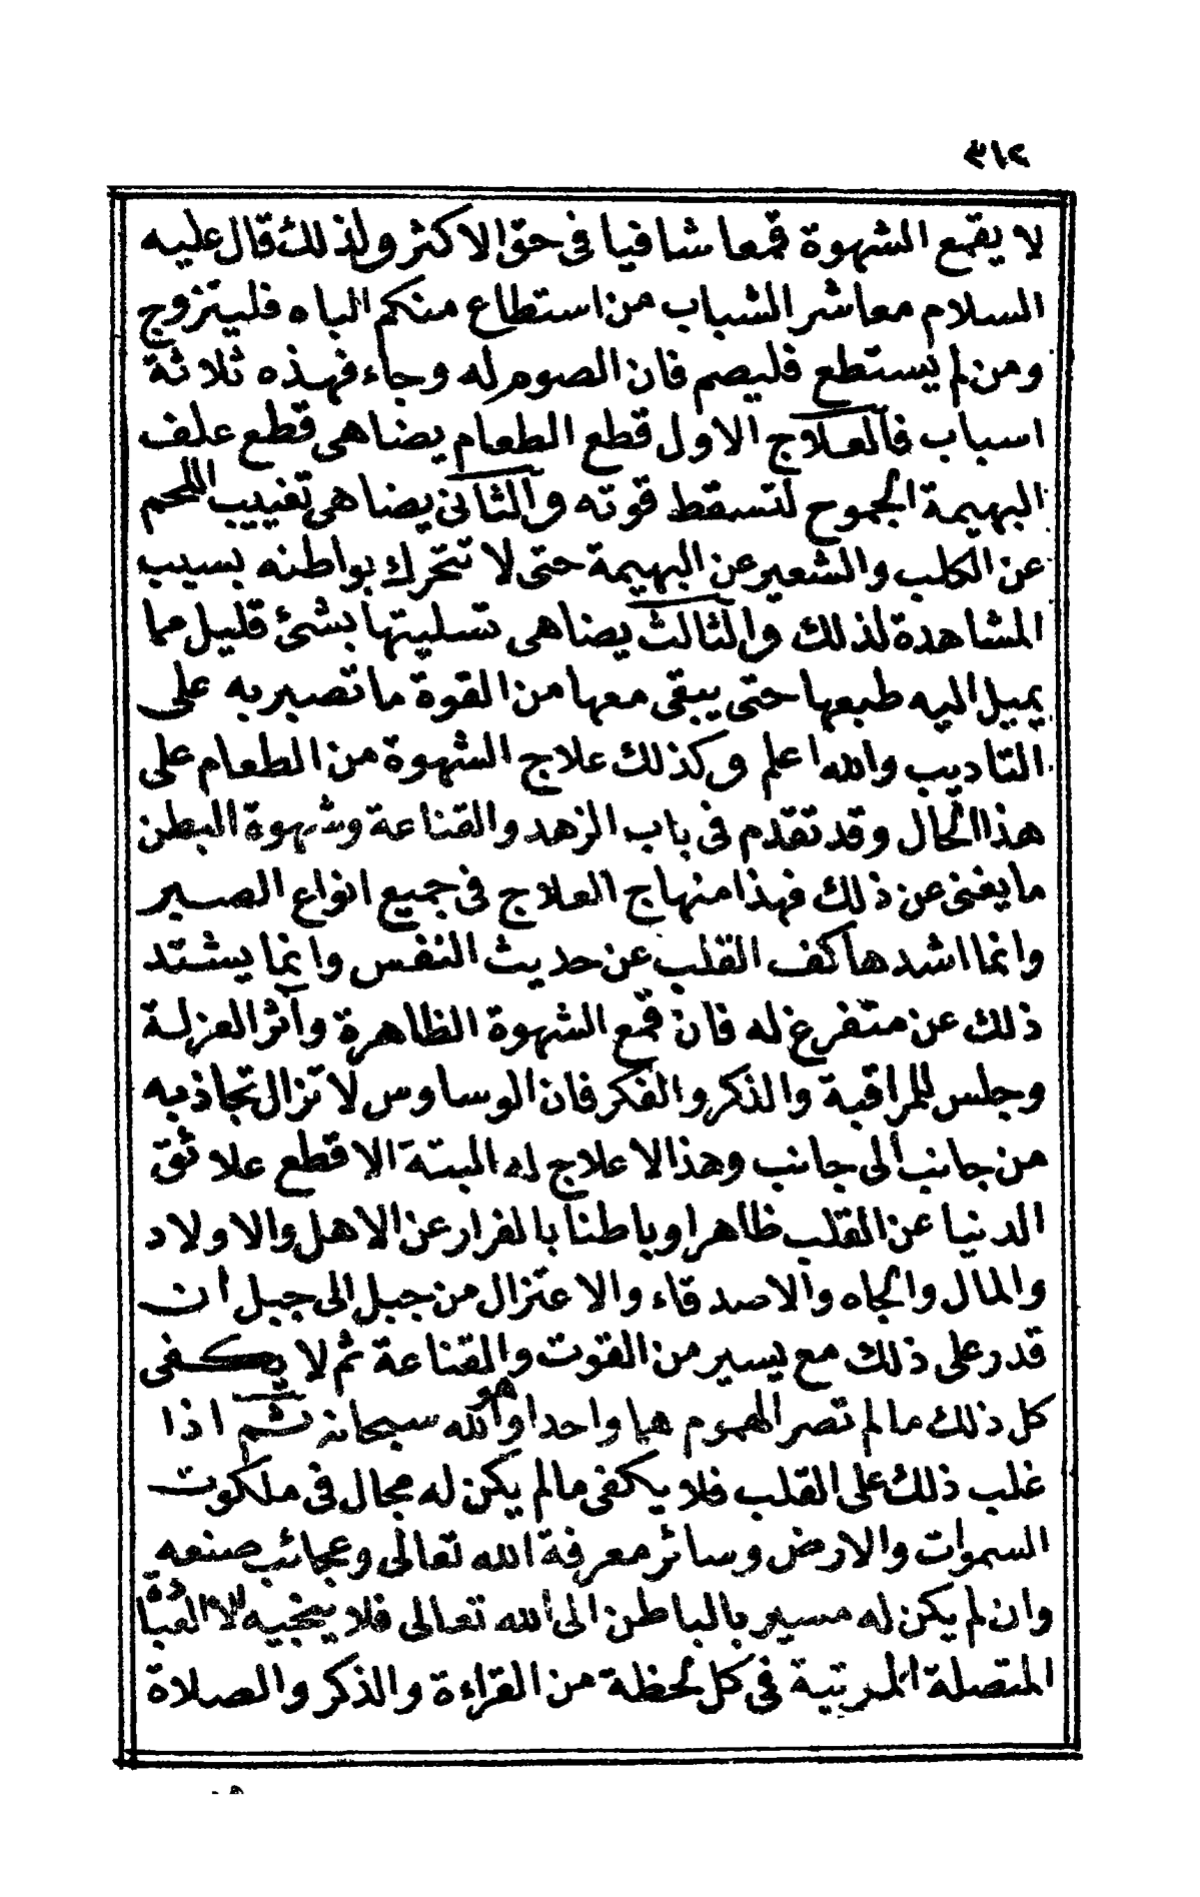 ٣١٢
لا يقمع الشهوة قمعا شافيا في حق الاكثر ولذلك قال عليه
السلام معاشر الشباب من استطاع منكم الباه فليتزوج
ومن لم يستطع فليصم فان الصوم له وجاء فهذه ثلاثة
اسباب فالعلاج الاول قطع الطعام يضاهى قطع علف
البهيمة الجموح لتسقط قوته والثانى يضاهى تغييب اللحم
عن الكلب والشعير عن البهيمة حتى لا تتحرك بواطنه بسبب
المشاهدة لذلك والثالث يضاهى تسليتها بشئ قليل مما
يميل اليه طبعها حتى يبقى معها من القوة ما تصبر به على
التاديب والله اعلم وكذلك علاج الشهوة من الطعام على
هذا الحال وقد تقدم فى باب الزهد والقناعة وشهوة البطن
ما يغنى عن ذلك فهذا منهاج العلاج فى جميع انواع الصبر
وانما اشدها كف القلب عن حديث النفس وانما يشتد
ذلك عن متفرغ له فان قمع الشهوة الظاهرة وآثر العزلة
وجلس للمراقبة والذكر والفكر فان الوساوس لا تزال تجاذبه
من جانب الى جانب وهذا لا علاج له البتة الا قطع علائق
الدنيا عن القلب ظاهرا وباطنا بالفرار عن الاهل والاولاد
والمال والجاه والاصدقاء والاعتزال من جبل الى جبل ان
قدر على ذلك مع يسير من القوت والقناعة ثم لا يكفى
كل ذلك مالم تصر الهموم هما واحدا وهو الله سبحانه ثم اذا
غلب ذلك على القلب فلا يكفى مالم يكن له مجال فى ملكوت
السموات والارض وسائر معرفة الله تعالى وعجائب صنعه
وان لم يكن له مسير بالباطن الى الله تعالى فلا ينجيه الا العبادة
المتصلة المرتبة فى كل لحظة من القراءة والذكر والصلاة